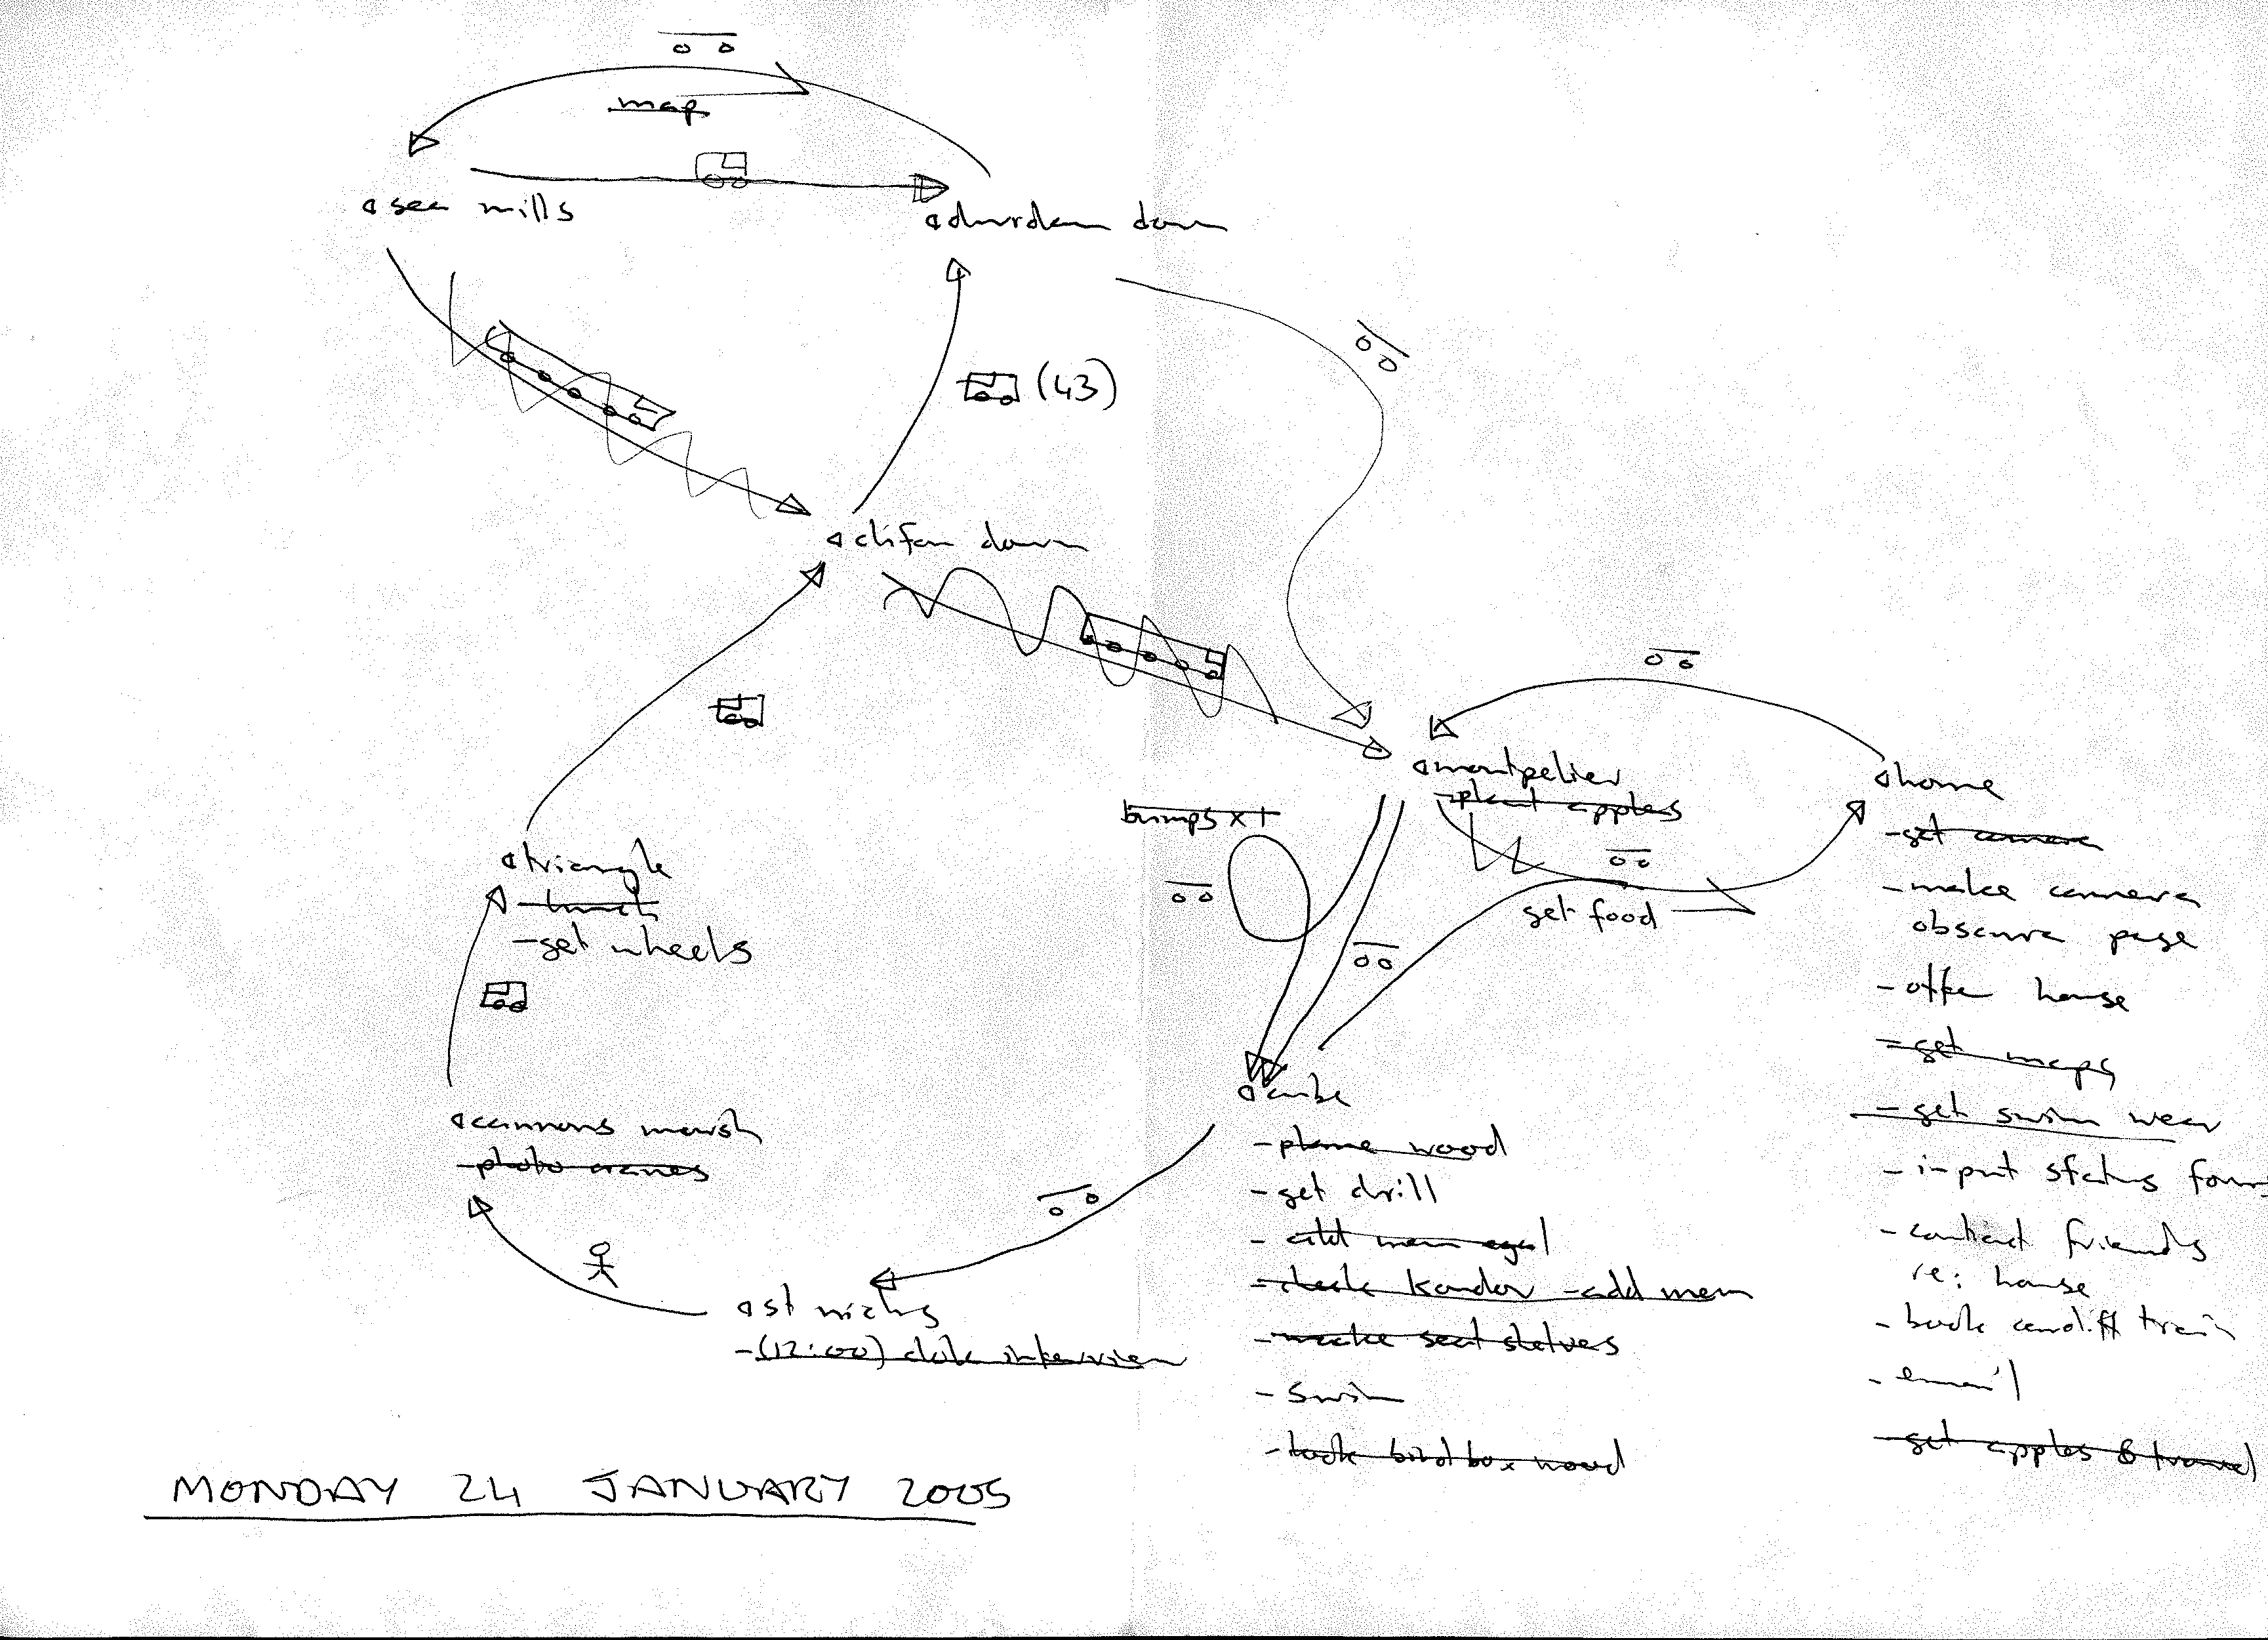 map
sea mills
durdam down
(43)
clifon down
montpelier
- plant apples
bumps x 1
get food
home
- get camera
- make camera
obscura page
- offer house
- get maps
- get swim wear
- input status form
- contact friends
re: house
- book cardiff train
- email
- get apples & trowel
triangle
- lunch
- get wheels
cannons marsh
- photo cranes
st nicks
- (12:00) interview
cube
- plane wood
- get drill
- add mem
- check kandor - add mem
- make seat shelves
- swim
- bird box wood
MONDAY 24 JANUARY 2005